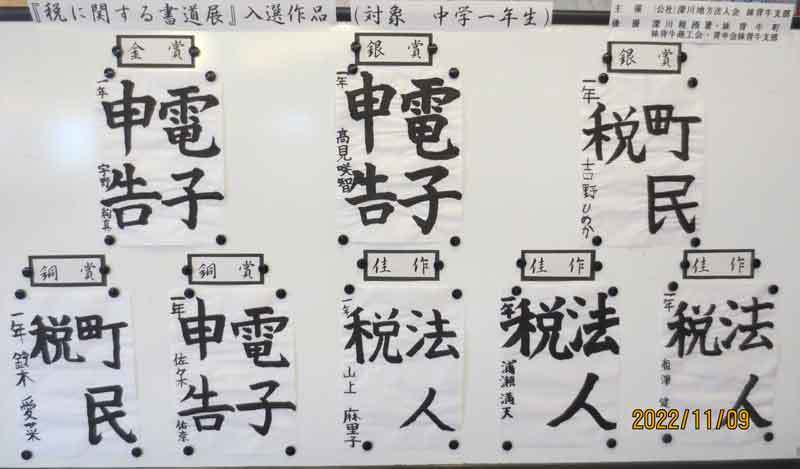 『税に関する書道展』入選作品 (対象 中学一年生)
主催 (公社)深川地方法人会 妹背牛支部
後援 深川税務署・妹背牛町
妹背牛商工会・青申会妹背牛支部
金賞
電子
申告
一年
銀賞
電子
申告
一年 高見咲智
銀賞
町民
税
一年 吉野ひのか
銅賞
町民
税
一年 鈴木愛菜
銅賞
電子
申告
一年 佐々木佑奈
佳作
法人
税
一年 山上麻里子
佳作
法人
税
一年 浦瀬満天
佳作
法人
税
一年
2022/11/09